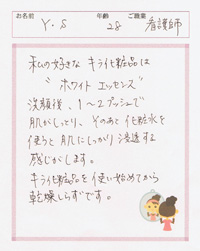 お名前 Y.S 年齢 28 ご職業 看護師
私の好きなキラ化粧品は
"ホワイト エッセンス"
洗顔後、1~2プッシュで
肌がしっとり、そのあと化粧水を
使うと肌にしっかり浸透する
感じがします。
キラ化粧品を使い始めてから
乾燥しらずです。